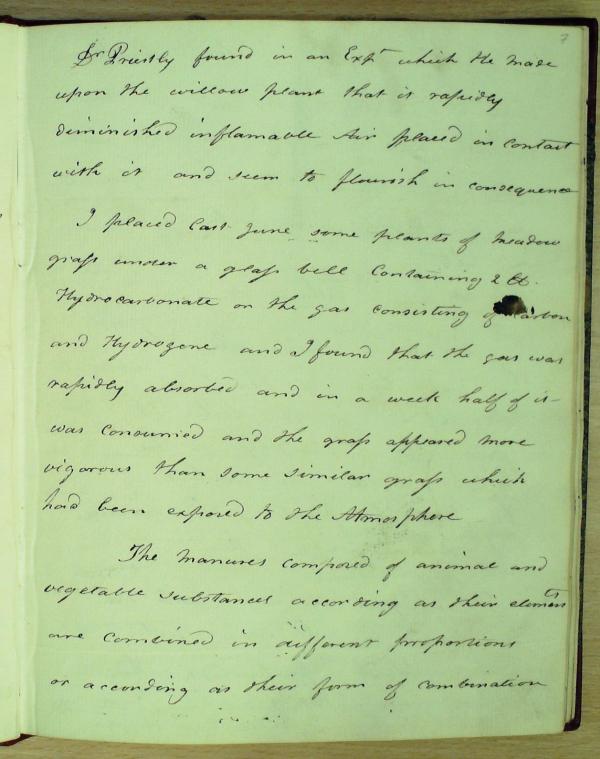 7
Dr Priestly found in an Expt which He made
upon the willow plant that it rapidly
diminished inflamable Air placed in contact
with it and seem to flourish in consequence
I placed last June some plants of meadow
grass under a glass bell Containing
Hydrocarbonate or the gas consisting of Carbon
and Hydrogene and I found that the gas was
rapidly absorbed and in a week half of it
was consumed and the grass appeared more
vigorous than some similar grass which
had been exposed to the Atmosphere
The manures composed of animal and
vegetable substances according as their elements
are combined in different proportions
or according as their form of combination